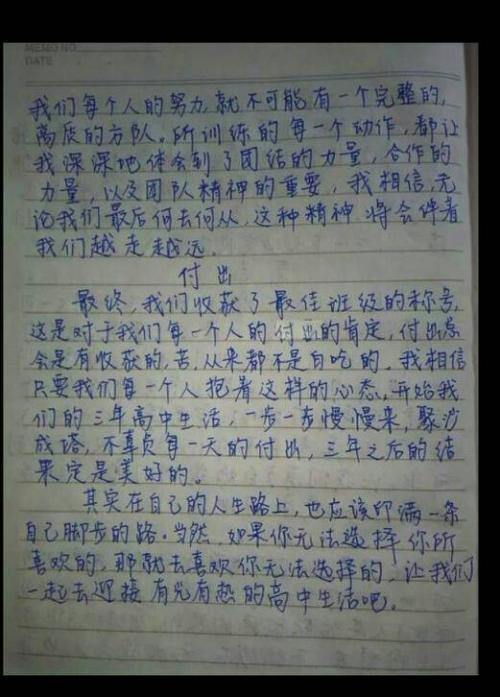 MEMO NO.
DATE
我们每个人的努力就不可能有一个完整的,
高质的方队。所训练的每一个动作,都让
我深深地体会到了团结的力量,合作的
力量,以及团队精神的重要,我相信,无
论我们最后何去何从,这种精神将会伴着
我们越走越远。
付出
最终,我们收获了最佳班级的称号,
这是对于我们每一个人的付出的肯定,付出总
会是有收获的,苦,从来都不是白吃的。我相信
只要我们每一个人抱着这样的心态,开始我
们的三年高中生活,一步一步慢慢来,聚沙
成塔,不辜负每一天的付出,三年之后的结
果定是美好的。
其实在自己的人生路上,也应该印满一条
自己脚步的路。当然,如果你无法选择你所
喜欢的,那就去喜欢你无法选择的,让我们
一起去迎接有光有热的高中生活吧。